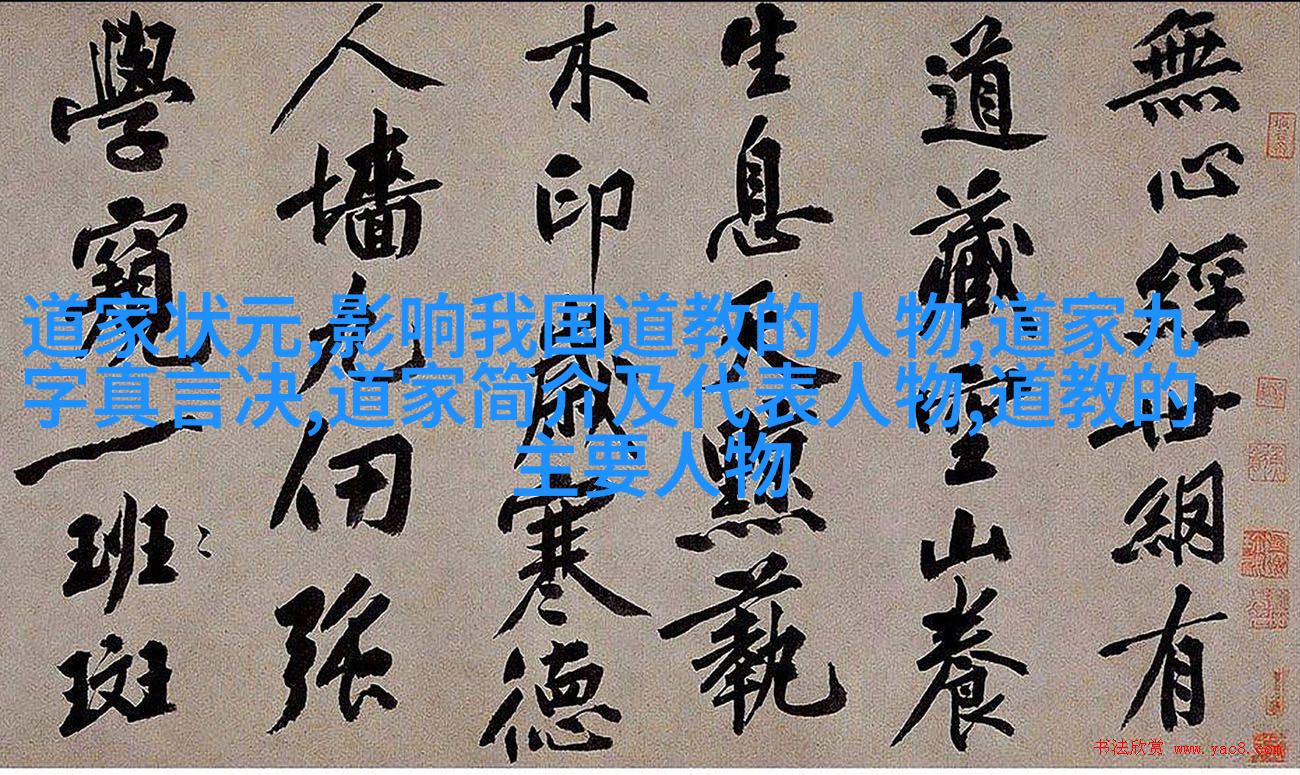 無心經世網有
道藏聖山養
生息天點藝
木印咸寒德
人墻允仞張
學窺一班〻斑
道家状元,影响我国道教的人物,道家九
字真言决,道家简介及代表人物,道教的
主要人物
书法欣赏 www.yac8.com